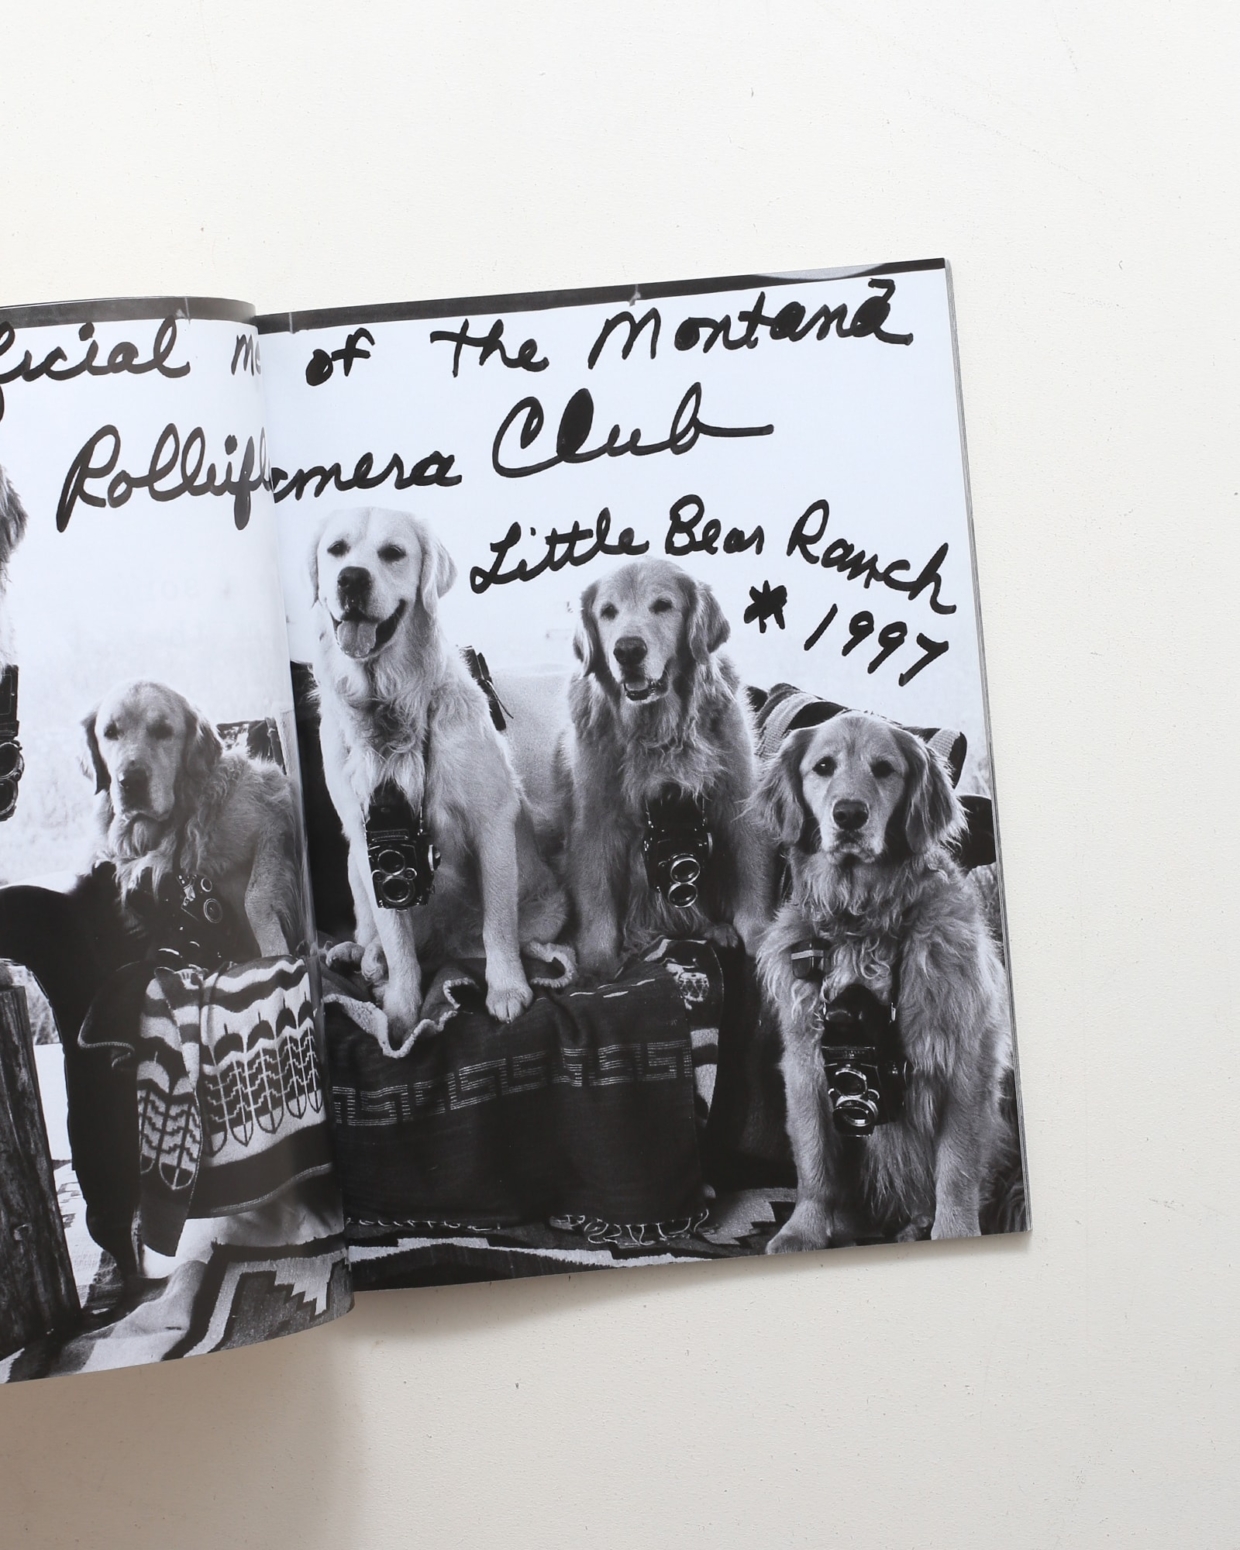 of the Montana
Rolleifl amera Club
Little Bear Ranch
* 1997